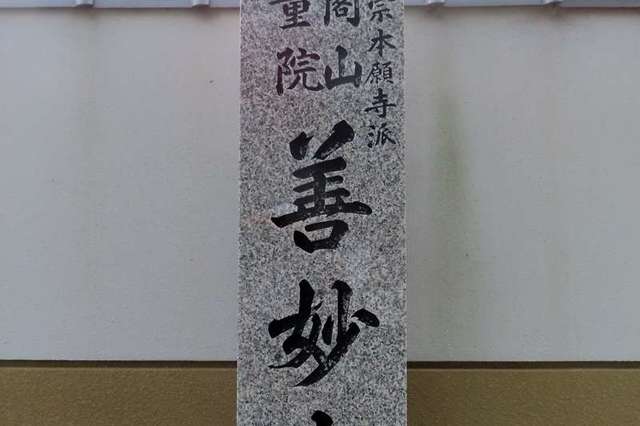 宗本願寺派
閣山
重院
善妙